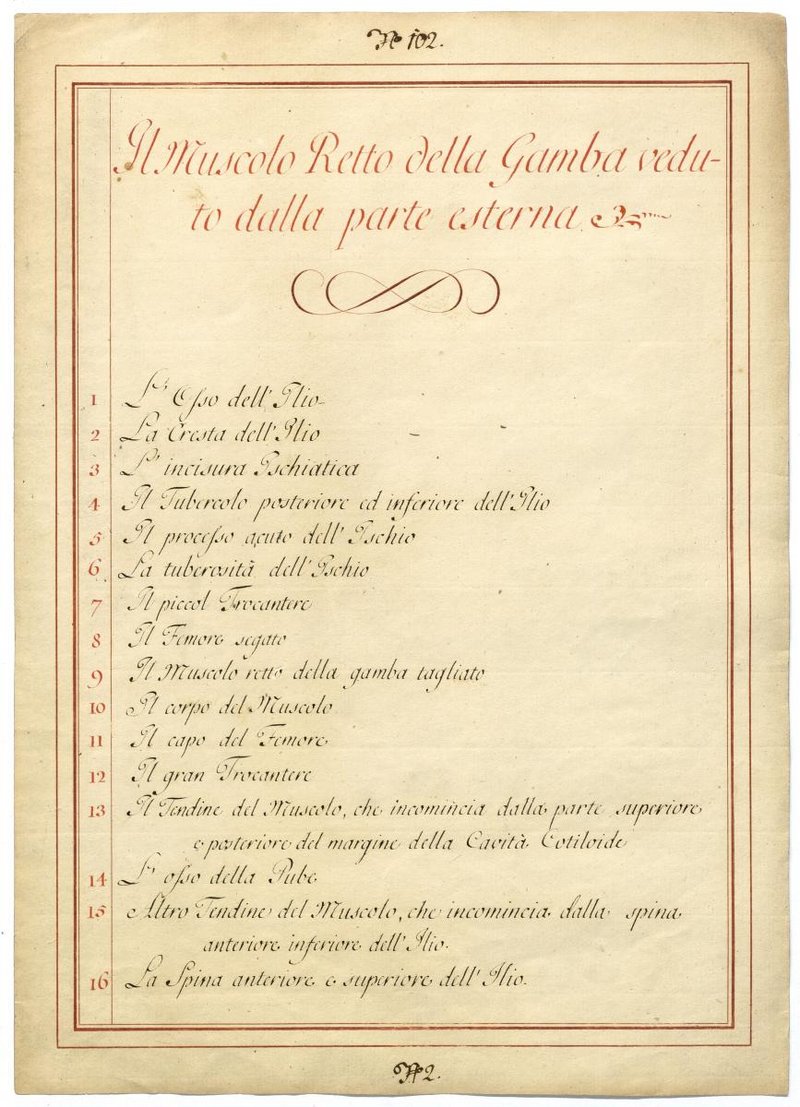 N.º 102.
Il Muscolo Retto della Gamba vedu-
to dalla parte esterna
1 L' Osso dell' Ilio
2 La Cresta dell' Ilio
3 L' incisura Ischiatica
4 Il Tubercolo posteriore ed inferiore dell' Ilio
5 Il processo acuto dell' Ischio
6 La tuberosità dell' Ischio
7 Il piccol Trocantere
8 Il Femore segato
9 Il Muscolo retto della gamba tagliato
10 Il corpo del Muscolo
11 Il capo del Femore
12 Il gran Trocantere
13 Il Tendine del Muscolo, che incomincia dalla parte superiore
e posteriore del margine della Cavità Cotiloide
14 L' osso della Pube
15 Altro Tendine del Muscolo, che incomincia dalla spina
anteriore inferiore dell' Ilio.
16 La Spina anteriore e superiore dell' Ilio.